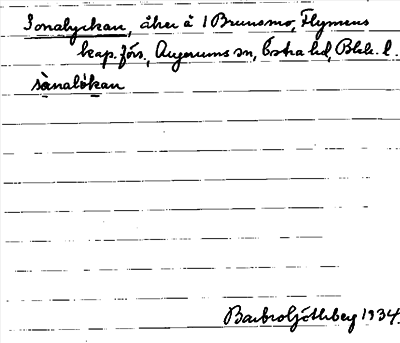 Sonalyckan, åker å 1 Brunsmo, Flymens
kap. förs., Augerums sn, Östra hd, Blek. l.
sånalökan
Barbro Götlberg 1934.